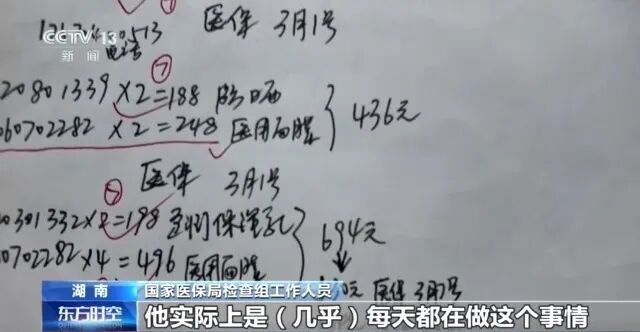 CCTV 13
新闻
513
医保 3月1号
电话
⑦
20801339 ×2=188 防晒
060702282 ×2=248 医用面膜 } 436元
医保 3月1号
0301332×2=198
694元
0702282×4=496 医用面膜
0元 医保 3月1号
湖南
国家医保局检查组工作人员
东方时空
他实际上是(几乎)每天都在做这个事情